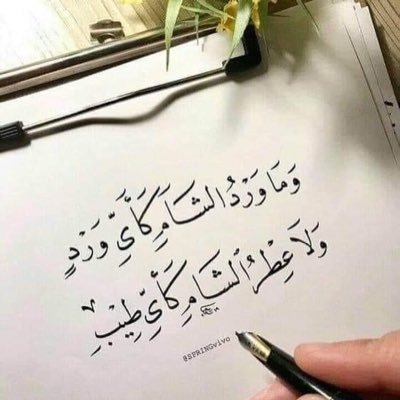 وَمَا وَرْدُ الشَامِ كَأَيِّ وَرْدٍ
وَلَا عِطْرُ الشَامِ كَأَيِّ طِيْبِ
@SPRINGvivo